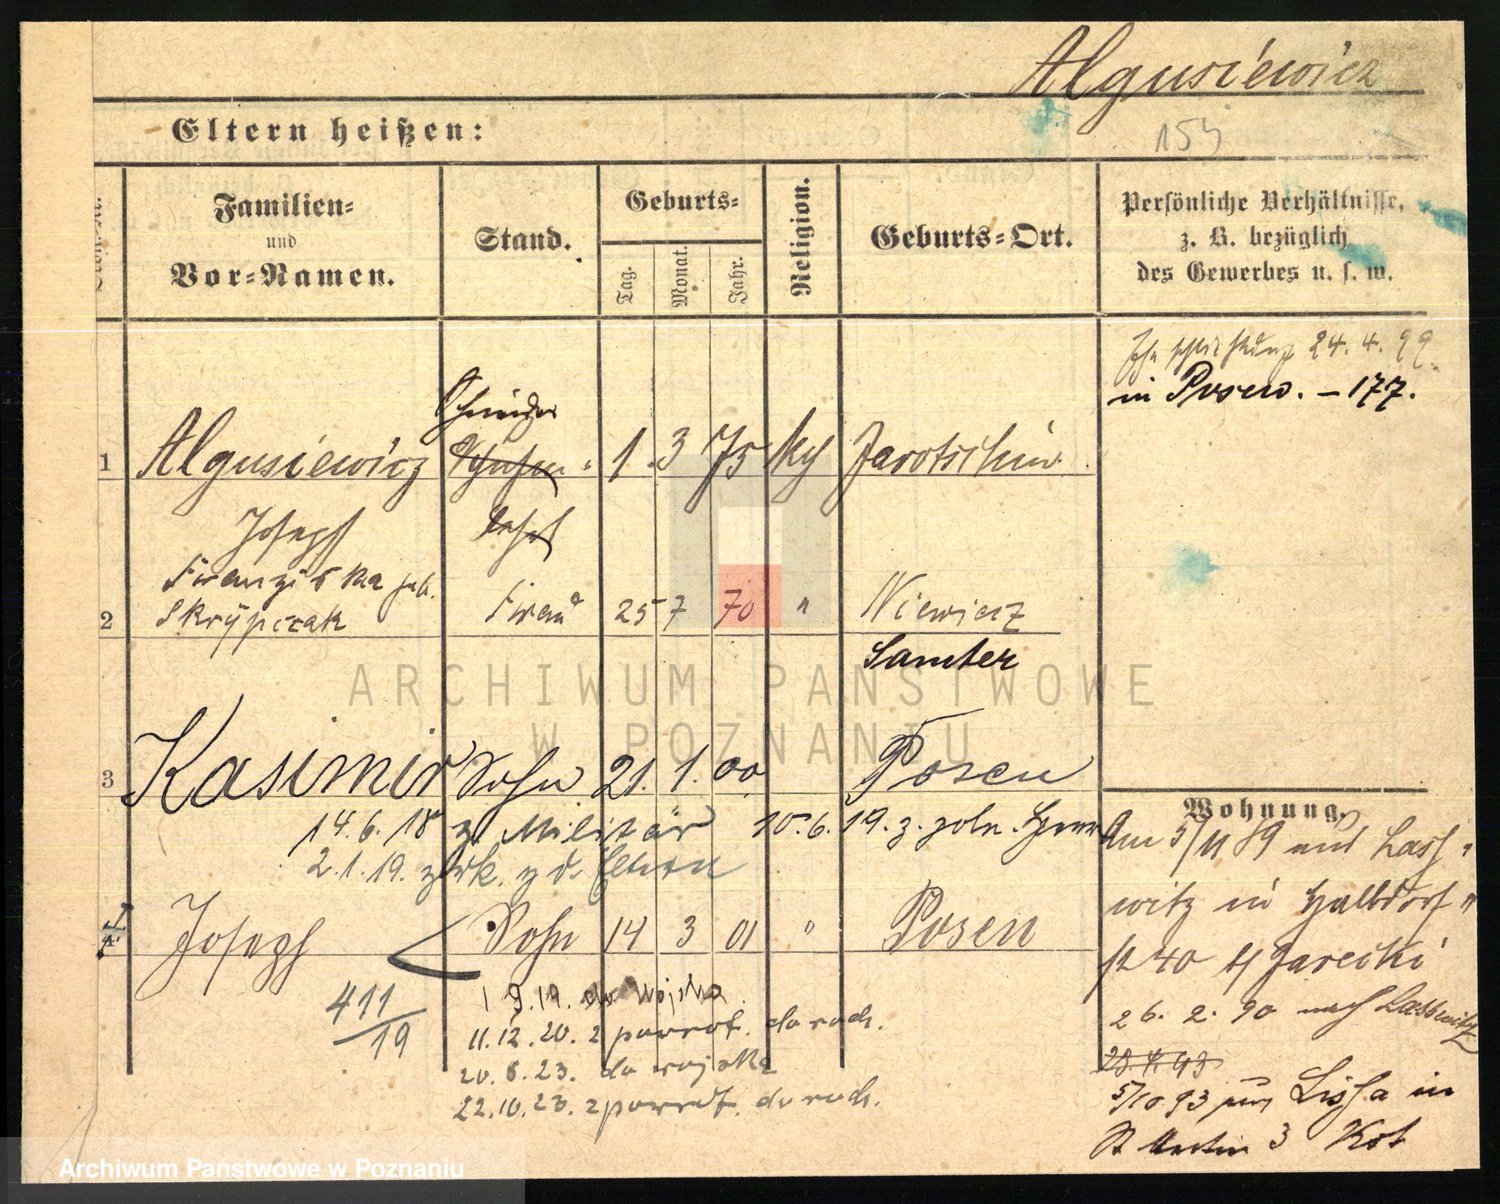 Algusiewicz
154
Eltern heißen:
Familien= und Vor=Namen.
Stand.
Geburts=
Tag.
Monat.
Jahr.
Religion.
Geburts=Ort.
Persönliche Verhältnisse,
z. B. bezüglich
des Gewerbes u. s. w.
24. 4. 99.
in Posen. – 177.
Schneider
1 Algusiewicz 1. 3 75 kth Jarotschin
Joseph
Franziska geb.
2 Skrypczak Frau 25 7 70 " Niewierz
Samter
3 Kasimir Sohn 21. 1. 00 Posen
14. 6. 18 z. Militär 10. 6. 19. z. poln.
2. 1. 19. zurück. z. d. Eltern
Joseph Sohn 14 3 01 " Posen
411/19
1 9. 19. do wojska
11. 12. 20. z powrot. do rodz.
20. 6. 23. do wojska
22. 10. 23. z powrot. do rodz.
Wohnung.
Am 5/11 89 aus Lass=
witz in Halbdorf
st 40 Jarecki
26. 2. 90 nach Lasswitz
5/10 93 aus Lissa in
St Martin 3
ARCHIWUM PAŃSTWOWE
W POZNANIU
Archiwum Państwowe w Poznaniu